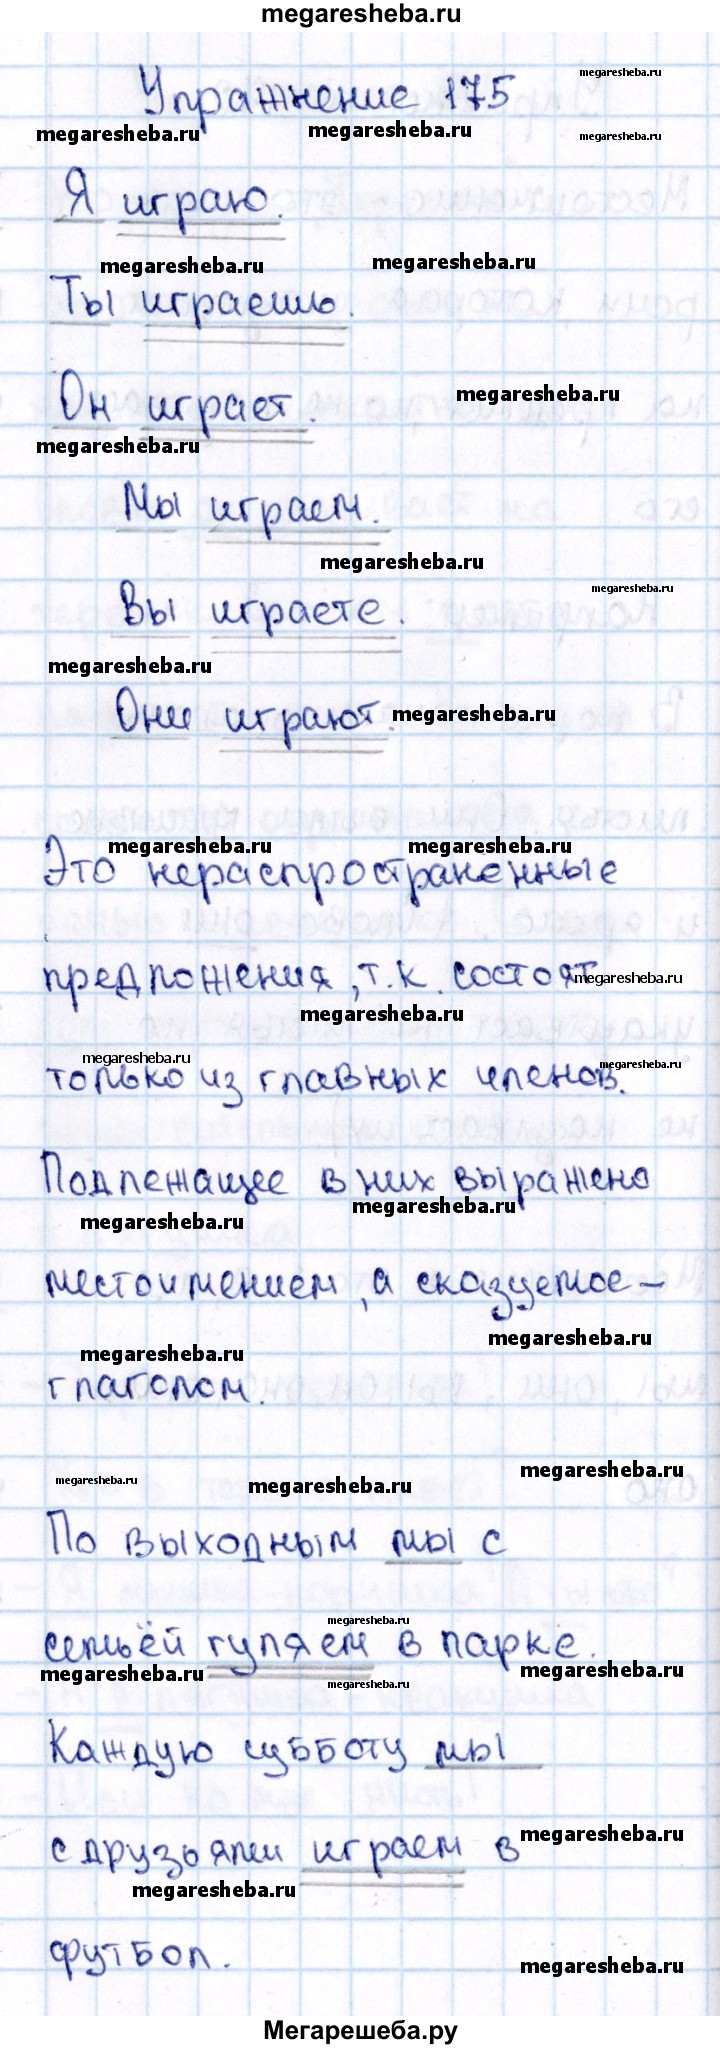 megaresheba.ru
Упражнение 175
megaresheba.ru
megaresheba.ru
megaresheba.ru
megaresheba.ru
Я играю.
megaresheba.ru
megaresheba.ru
Ты играешь.
Он играет.
megaresheba.ru
megaresheba.ru
Мы играем.
megaresheba.ru
Вы играете.
megaresheba.ru
megaresheba.ru
Они играют.
megaresheba.ru
megaresheba.ru
megaresheba.ru
Это нераспространенные
предложения, т.к. состоят
megaresheba.ru
megaresheba.ru
megaresheba.ru
megaresheba.ru
только из главных членов.
Подлежащее в них выражено
megaresheba.ru
megaresheba.ru
местоимением, а сказуемое –
megaresheba.ru
megaresheba.ru
глаголом.
megaresheba.ru
megaresheba.ru
megaresheba.ru
По выходным мы с
megaresheba.ru
семьёй гуляем в парке.
megaresheba.ru
megaresheba.ru
megaresheba.ru
Каждую субботу мы
megaresheba.ru
с друзьями играем в
megaresheba.ru
футбол.
megaresheba.ru
Мегарешеба.ру